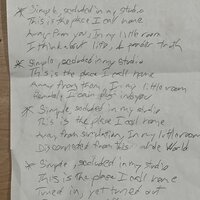 * Simple, secluded in my studio
This is the place I call home
Away from you, In my little room
I think about life, & ponder truth
* Simple, secluded in my studio
This is the place I call home
Away from them, In my little room
Humble, I can just
* Simple, secluded in my studio
This is the place I call home
Away from simulation, In my little room
Disconnected from this wide World
* Simple, secluded in my studio
This is the place I call home
Tuned in, yet tuned out